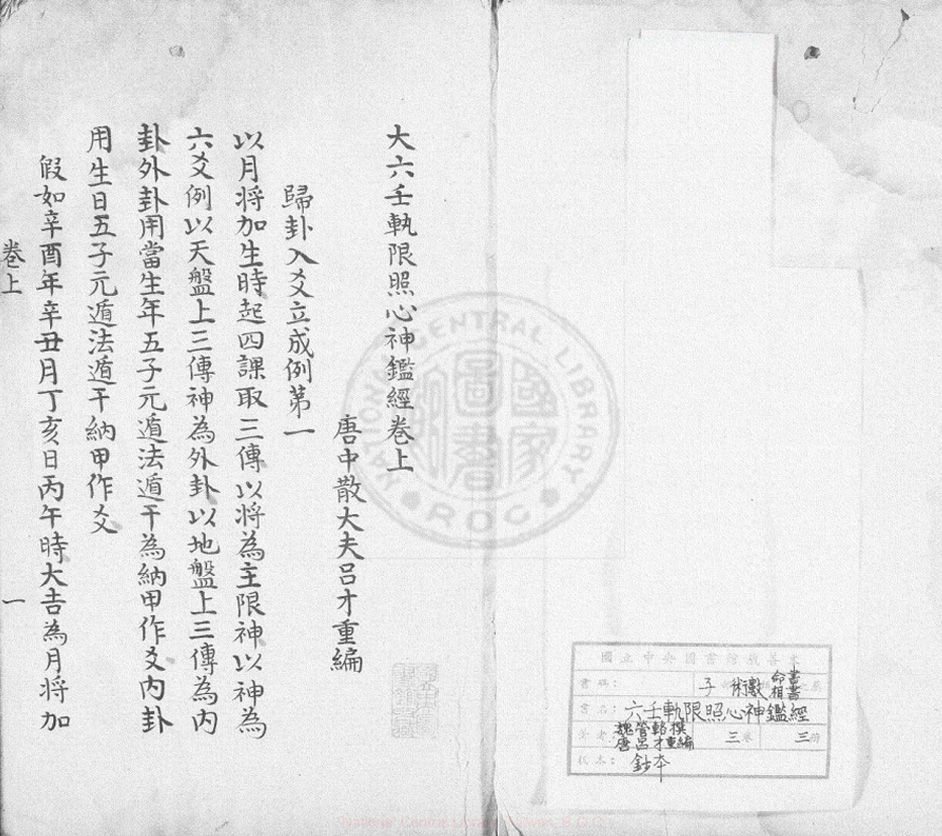 大六壬軌限照心神鑑經卷上
唐中散大夫呂才重編
歸卦入爻立成例第一
以月將加生時起四課取三傳以將為主限神以神為
六爻例以天盤上三傳神為外卦以地盤上三傳為內
卦外卦用當生年五子元遁法遁干為納甲作爻內卦
用生日五子元遁法遁干納甲作爻
假如辛酉年辛丑月丁亥日丙午時大吉為月將加
卷上 一
NATIONAL CENTRAL LIBRARY
國家圖書館
ROC
國立中央圖書館藏善本
書碼：
子 術數 命書相書
書名：六壬軌限照心神鑑經
著者：魏管輅撰 唐呂才重編 三卷 三
版本：鈔本
National Central Library, Taiwan, R.O.C